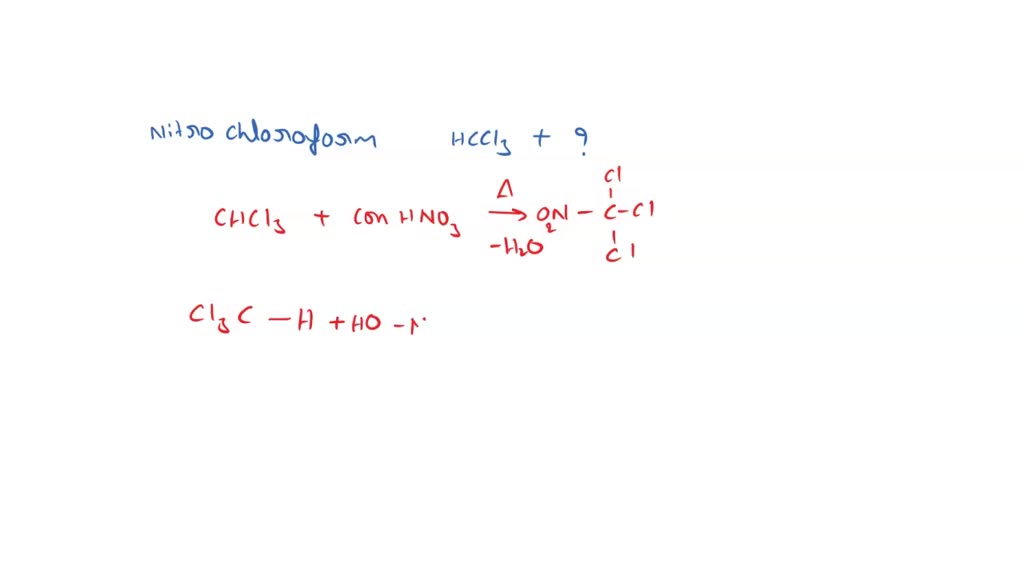 Nitro chloroform HCCl3 + ?
CHCl3 + Con HNO3 Δ → -H2O O2N - C - Cl
Cl
Cl
Cl3C - H + HO - N